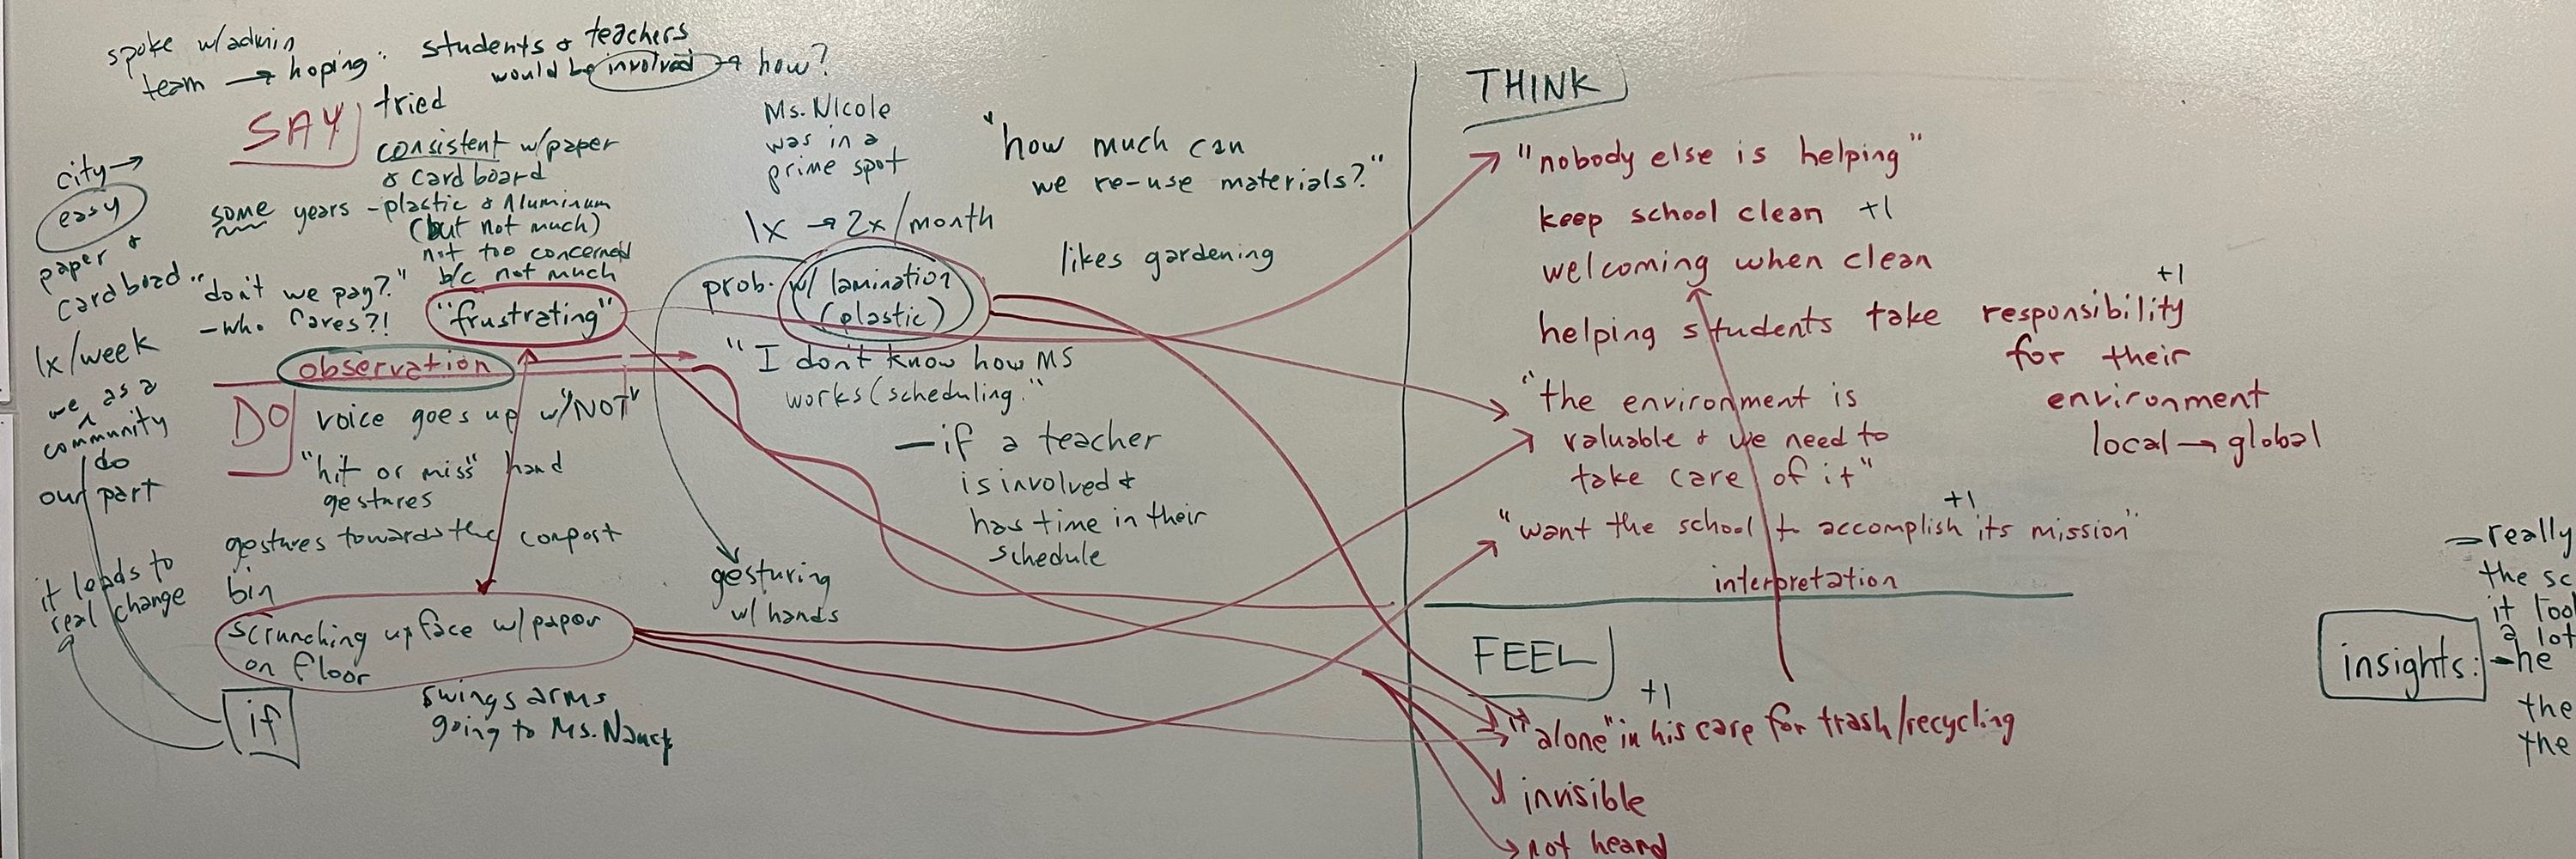 spoke w/admin
team → hoping:
students & teachers
would be involved → how?
SAY
tried
consistent w/paper
& cardboard
some years - plastic & Aluminum
(but not much)
not too concerned
b/c not much
city →
easy
paper &
cardboard
1x/week
we as a
community
do
our part
it leads to
real change
if
"don't we pay?"
- who cares?!
"frustrating"
Ms. Nicole
was in a
prime spot
1x → 2x/month
prob. w/ lamination
(plastic)
"how much can
we re-use materials?"
likes gardening
"I don't know how MS
works (scheduling."
- if a teacher
is involved &
has time in their
schedule
observation
DO
voice goes up w/"NOT"
"hit or miss" hand
gestures
gestures towards the compost
bin
scrunching up face w/paper
on floor
swings arms
going to Ms. Nancy
gesturing
w/ hands
THINK
"nobody else is helping"
keep school clean +1
welcoming when clean
+1
helping students take responsibility
for their
environment
local → global
"the environment is
valuable & we need to
take care of it"
+1
"want the school to accomplish its mission"
interpretation
FEEL
+1
"alone" in his care for trash/recycling
invisible
not heard
insights:
- really
the sc
it too
a lot
- he
the
the